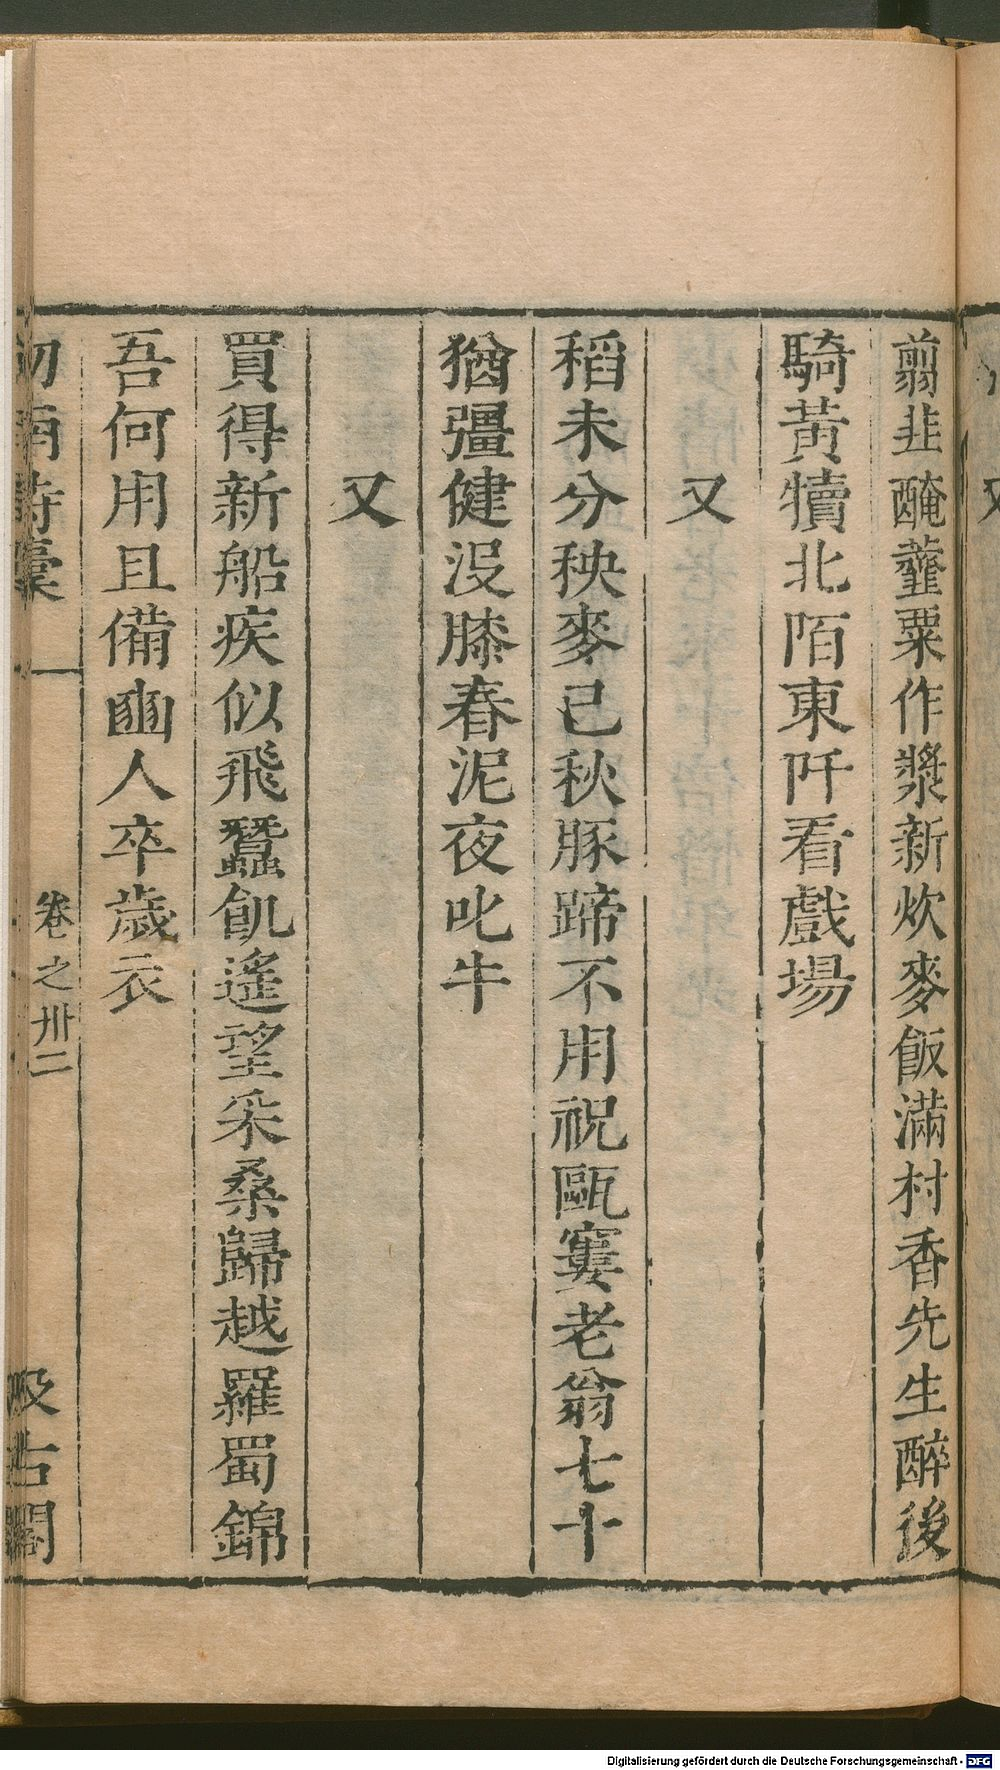 又
翦韭醃虀粟作漿新炊麥飯滿村香先生醉後
騎黃犢北陌東阡看戲場
又
稻未分秧麥已秋豚蹄不用祝甌窶老翁七十
猶彊健没膝春泥夜叱牛
又
買得新船疾似飛蠶飢遙望采桑歸越羅蜀錦
吾何用且備豳人卒歲衣
劒南詩稾 卷之卅二 汲古閣
Digitalisierung gefördert durch die Deutsche Forschungsgemeinschaft - DFG